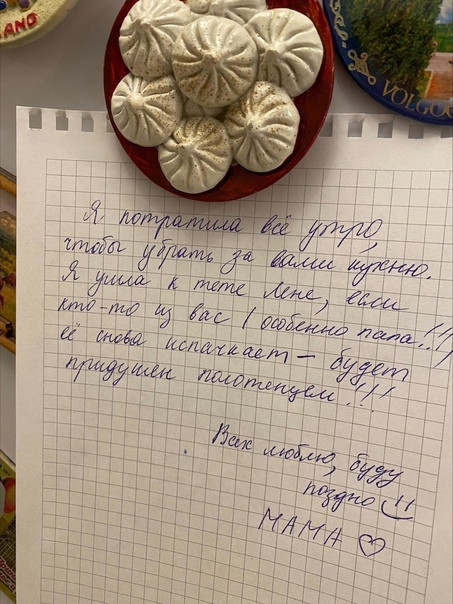 LAND
VOLGOG
Я потратила всё утро,
чтобы убрать за вами кухню.
Я ушла к тете Лене, если
кто-то из вас (особенно папа!!!)
её снова испачкает — будет
придушен полотенцем!!!
Всех люблю, буду
поздно
МАМА ♡